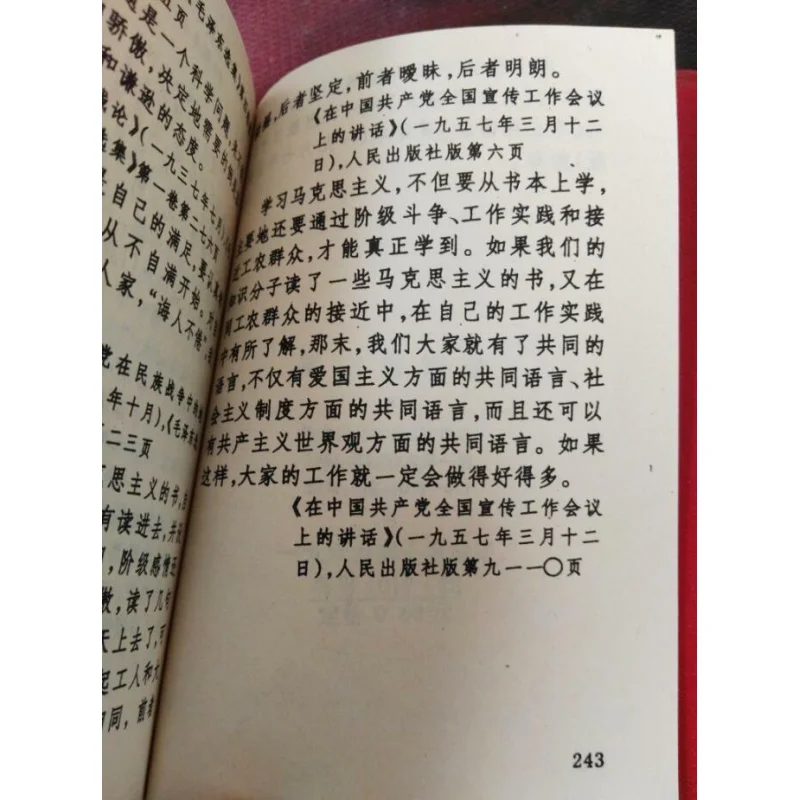 五页
《毛泽东选集》
是一个科学问题,
骄傲,决定地需要的倒是
和谦逊的态度。
论》(一九三七年七月)
选集》第一卷第二七六页
自己的满足,要认真
从不自满开始。对
人家,“诲人不倦”,
党在民族战争中的地
年十月),《毛泽东
二三页
思主义的书,自
有读进去,并没
,阶级感情还
傲,读了几句
天上去了,可
起工人和大
同,前者
后者坚定,前者暧昧,后者明朗。
《在中国共产党全国宣传工作会议
上的讲话》(一九五七年三月十二
日),人民出版社版第六页
学习马克思主义,不但要从书本上学,
主要地还要通过阶级斗争、工作实践和接
近工农群众,才能真正学到。如果我们的
知识分子读了一些马克思主义的书,又在
同工农群众的接近中,在自己的工作实践
中有所了解,那末,我们大家就有了共同的
语言,不仅有爱国主义方面的共同语言、社
会主义制度方面的共同语言,而且还可以
有共产主义世界观方面的共同语言。如果
这样,大家的工作就一定会做得好得多。
《在中国共产党全国宣传工作会议
上的讲话》(一九五七年三月十二
日),人民出版社版第九——一〇页
243